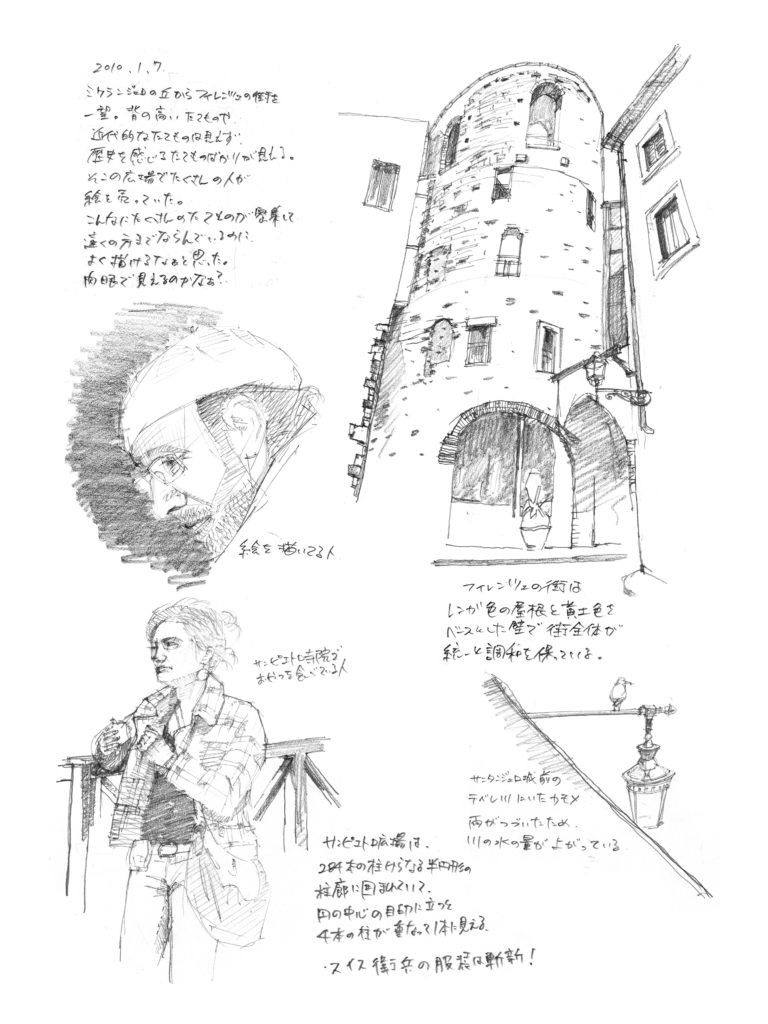 2010.1.7.
ミケランジェロの丘からフィレンツェの街を
一望。背の高いたてものや
近代的なたてものは見えず
歴史を感じるたてものばかりが見える。
そこの広場でたくさんの人が
絵を売っていた。
こんなにたくさんのたてものが密集して
遠くの方までならんでいるのに
よく描けるなぁと思った。
肉眼で見えるのかなぁ？
絵を描いてる人
フィレンツェの街は
レンガ色の屋根と黄土色を
ベースにした壁で街全体が
統一と調和を保っている。
サンピエトロ寺院で
おやつを食べている人
サンタンジェロ城前の
テベレ川にいたカモメ
雨がつづいたため
川の水の量が上がっている
サンピエトロ広場は、
284本の柱からなる半円形の
柱廊に囲まれていて、
円の中心の目印に立つと
4本の柱が重なって1本に見える。
・スイス衛兵の服装は斬新！